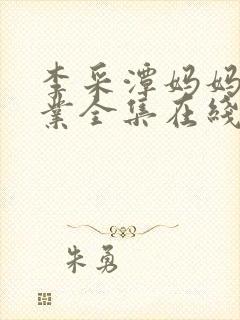 李采潭妈妈
业全集在线
朱勇